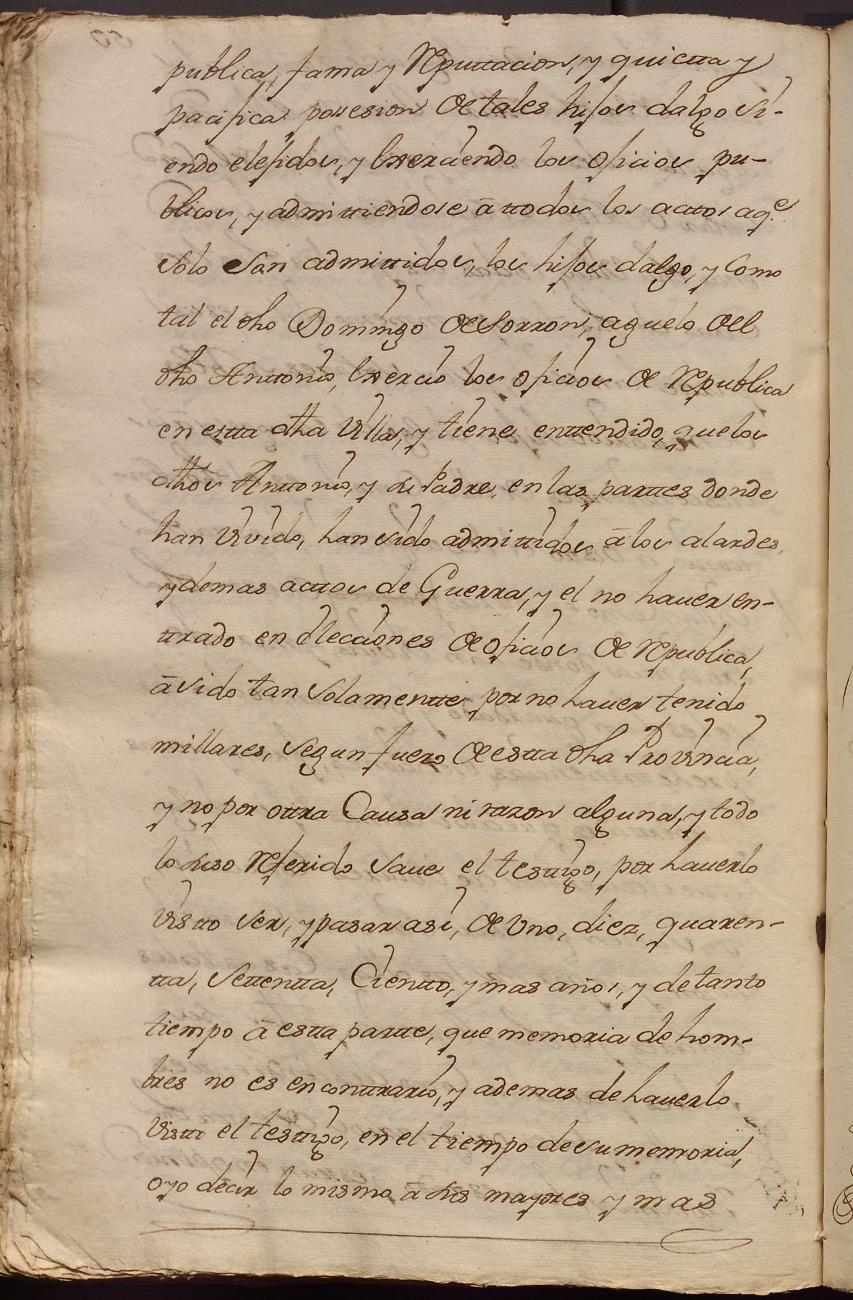 publica, fama y Reputtacion, y quietta y
pacifica posesion de tales hijos dalgo si-
endo elejidos, y exerciendo los oficios pu-
blicos, y admittiendose â ttodos los acttos aq.e
solo son admittidos, los hijos dalgo, y como
tal el dho Domingo de Sorron, aguelo del
dho Anttonio, exercio los oficios de Republica
en estta dha Villa, y tiene enttendido, que los
dhos Anttonio, y su Padre, en las parttes donde
han vivido, han sido admittidos â los alardes,
y demas acttos de Guerra, y el no haver en-
ttrado en elecciones de oficios de Republica,
â sido tan solamentte por no haver tenido
millares, segun fuero de estta dha Provincia,
y no por ottra Causa ni razon alguna, y todo
lo suso Referido save el testtigo, por haverlo
vistto ser, y pasar asi, de uno, diez, quaren-
tta, settentta, Cientto, y mas años, y de tanto
tiempo â estta partte, que memoria de hom-
bres no es en conttrario, y ademas de haverlo
vistto el testtigo, en el tiempo de su memoria,
oyo decir lo mismo â sus mayores y mas